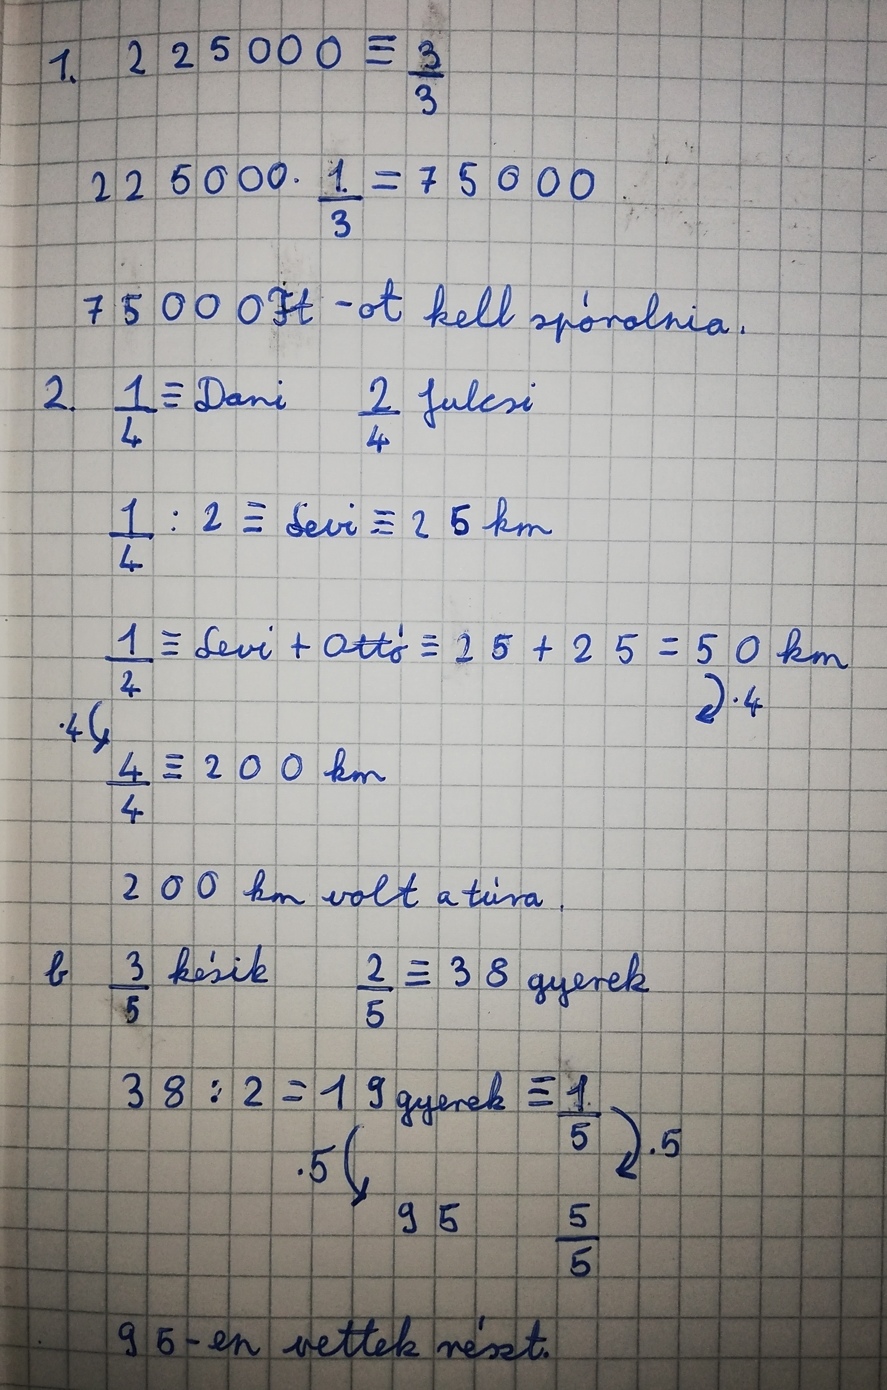 1. 225000 ≡ 3/3
225000 · 1/3 = 75000
75000 Ft-ot kell spórolnia.
2. 1/4 ≡ Dani 2/4 Julcsi
1/4 : 2 ≡ Levi ≡ 25 km
1/4 ≡ Levi + Ottó ≡ 25 + 25 = 50 km
·4 ·4
4/4 ≡ 200 km
200 km volt a túra.
b 3/5 késik 2/5 ≡ 38 gyerek
38 : 2 = 19 gyerek ≡ 1/5
·5 ·5
95 5/5
95-en vettek részt.